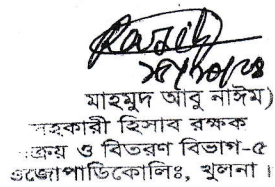 ২৫/১০/২১
মাহমুদ আবু নাঈম)
সহকারী হিসাব রক্ষক
বিক্রয় ও বিতরণ বিভাগ-৫
ওজোপাডিকোলিঃ, খুলনা।